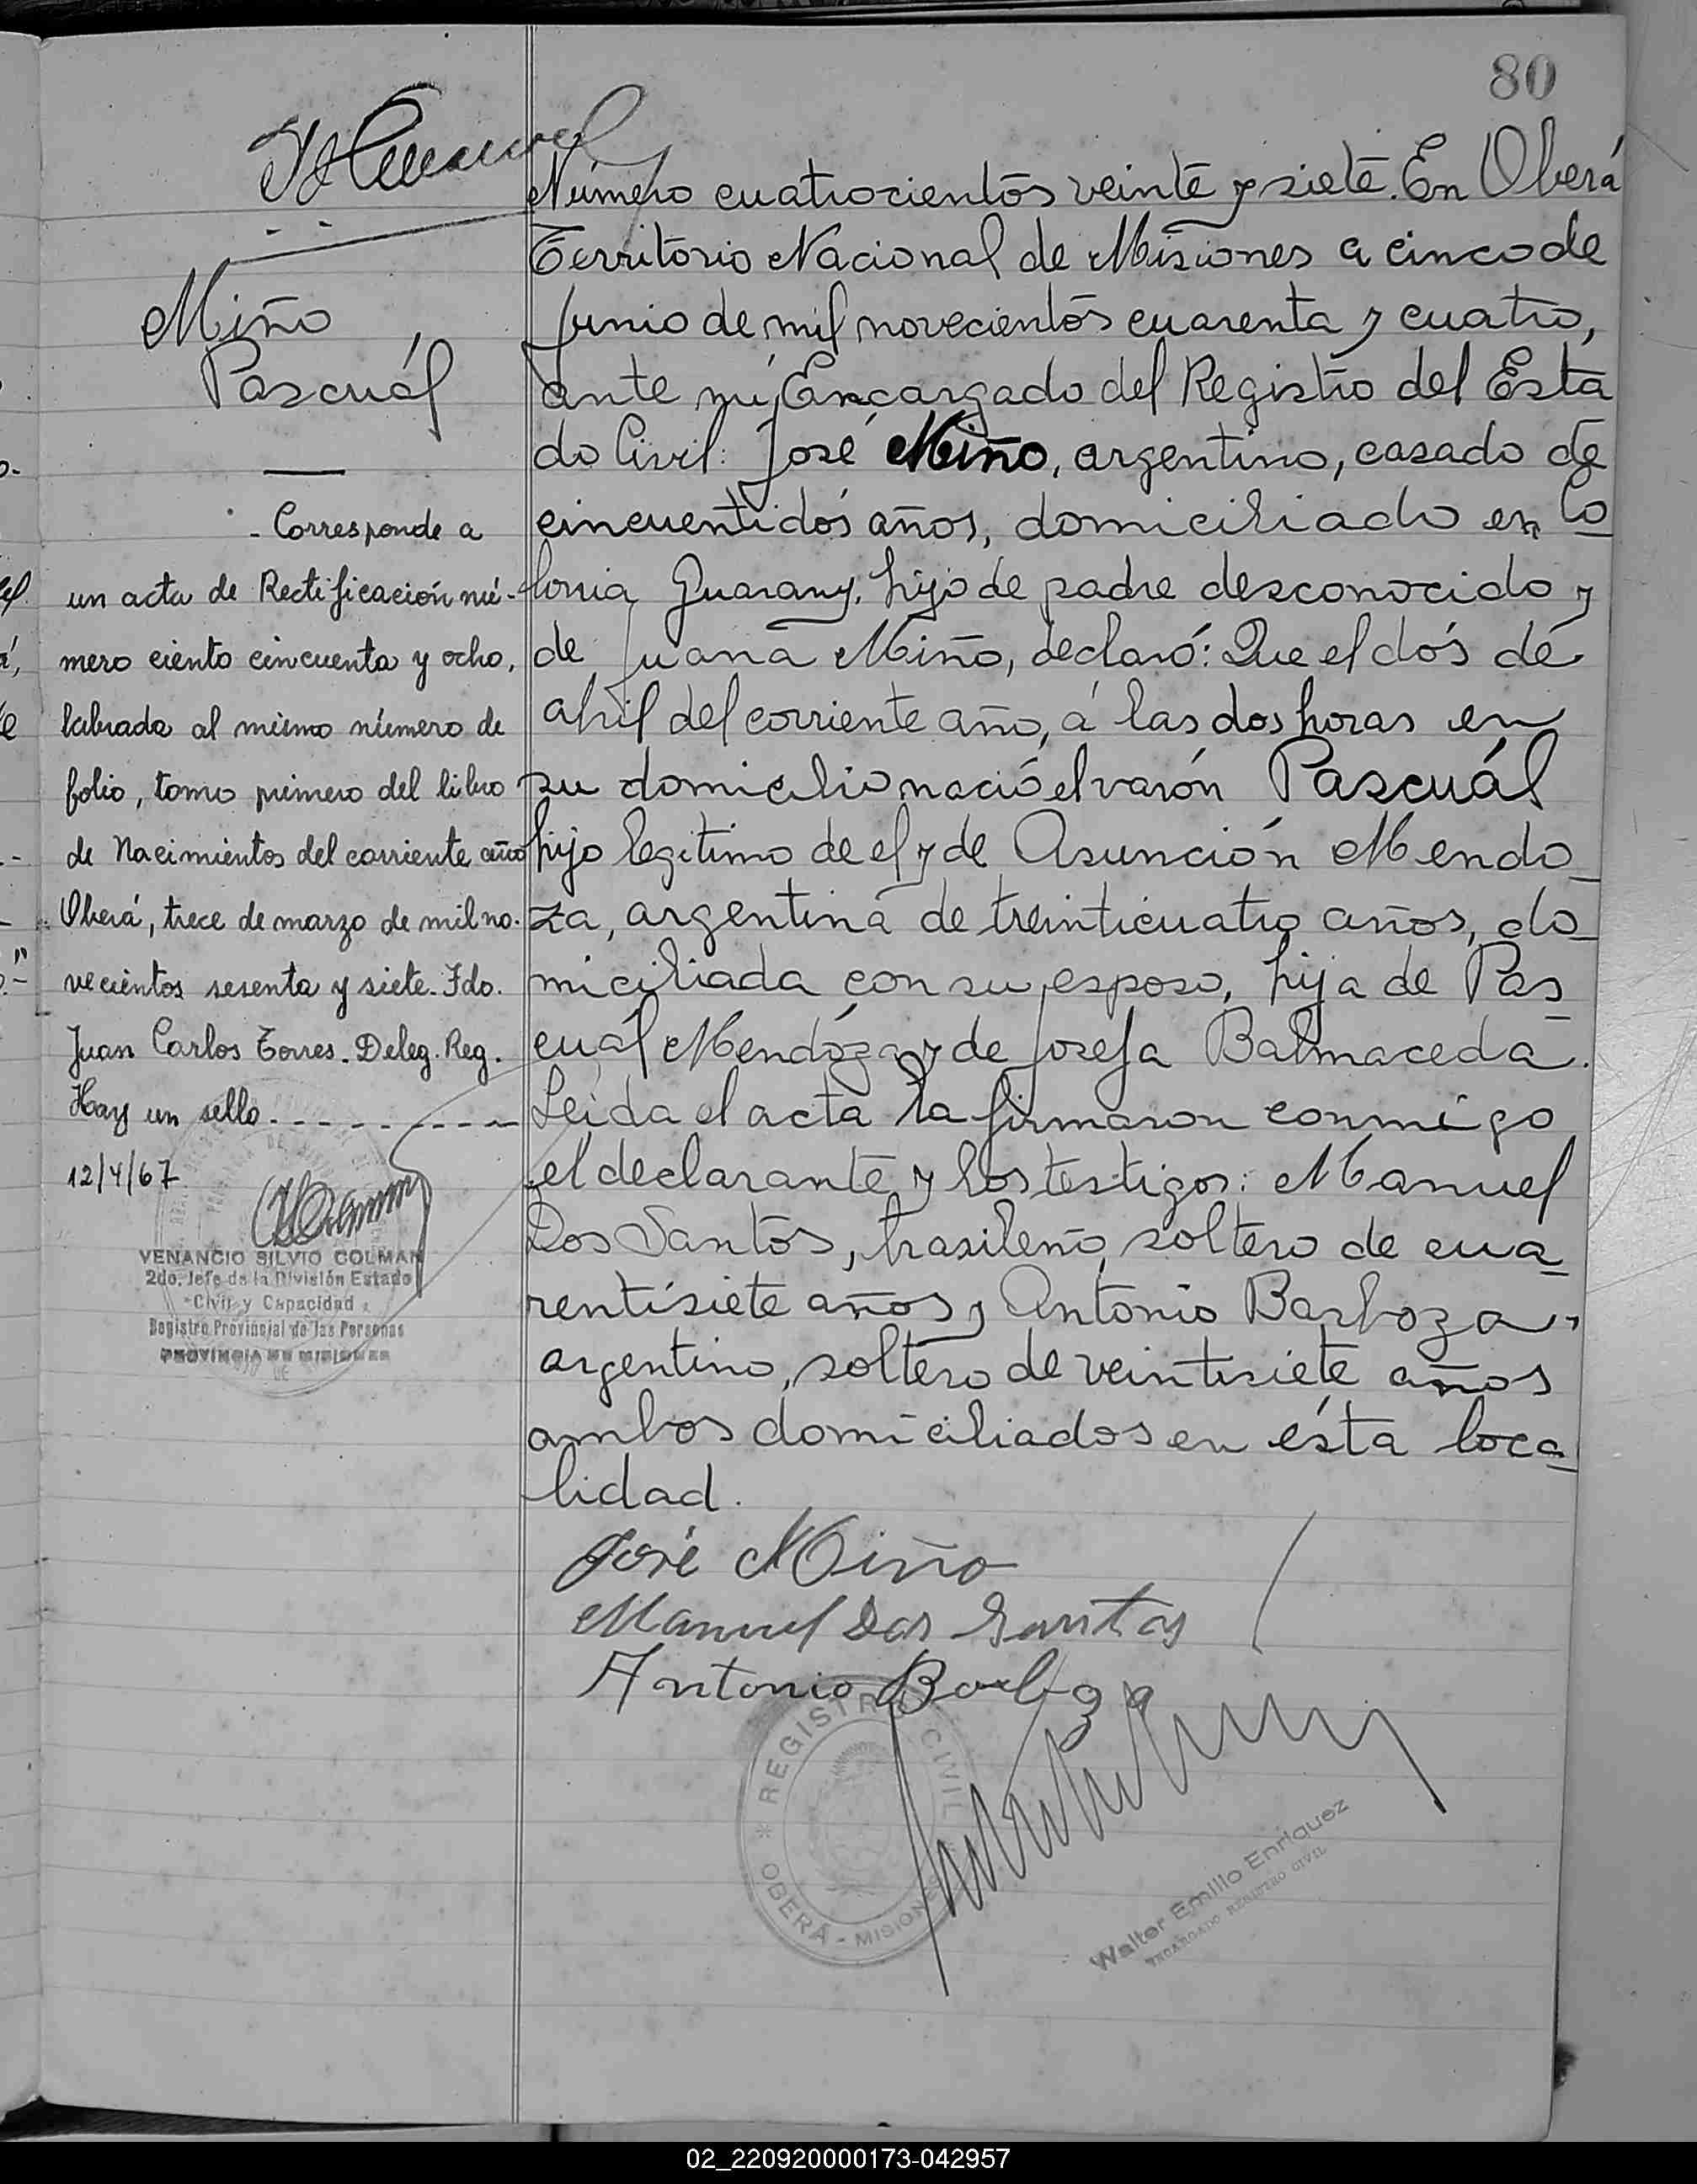 80
Miño
Pascuál
- Corresponde a
un acta de Rectificación nú-
mero ciento cincuenta y ocho,
labrada al mismo número de
folio, tomo primero del libro
de Nacimientos del corriente año
Oberá, trece de marzo de mil no-
vecientos sesenta y siete. Fdo.
Juan Carlos Torres. Deleg. Reg.
Hay un sello.
12/4/67
VENANCIO SILVIO COLMAN
2do. Jefe de la División Estado
Civil y Capacidad
Registro Provincial de las Personas
PROVINCIA DE MISIONES
Número cuatrocientos veinte y siete. En Oberá
Territorio Nacional de Misiones a cinco de
Junio de mil novecientos cuarenta y cuatro,
ante mí, Encargado del Registro del Esta
do Civil: José Miño, argentino, casado de
cincuentidós años, domiciliado en Co
lonia Guarany, hijo de padre desconocido y
de Juana Miño, declaró: Que el dós de
abril del corriente año, á las dos horas en
su domicilio nació el varón Pascuál
hijo legitimo de el y de Asunción Mendo
za, argentina de treinticuatro años, do
miciliada con su esposo, hija de Pas
cuál Mendóza y de Josefa Balmaceda.
Leída el acta la firmaron conmigo
el declarante y los testigos: Manuel
Dos Santos, brasileño, soltero de cua
rentisiete años y Antonio Barboza,
argentino, soltero de veintisiete años
ambos domiciliados en ésta loca
lidad.
José Miño
Manuel Dos Santos
Antonio Barboza
REGISTRO CIVIL
OBERÁ - MISIONES
Walter Emilio Enriquez
ENCARGADO REGISTRO CIVIL
02_220920000173-042957